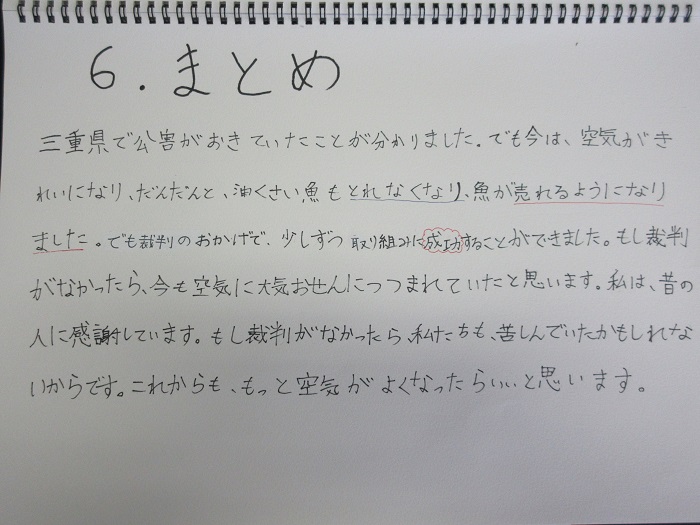 6.まとめ
三重県で公害がおきていたことが分かりました。でも今は、空気がき
れいになり、だんだんと、油くさい魚もとれなくなり、魚が売れるようになり
ました。でも裁判のおかげで、少しずつ取り組みに成功することができました。もし裁判
がなかったら、今も空気に大気おせんにつつまれていたと思います。私は、昔の
人に感謝しています。もし裁判がなかったら、私たちも、苦しんでいたかもしれな
いからです。これからも、もっと空気がよくなったらいいと思います。